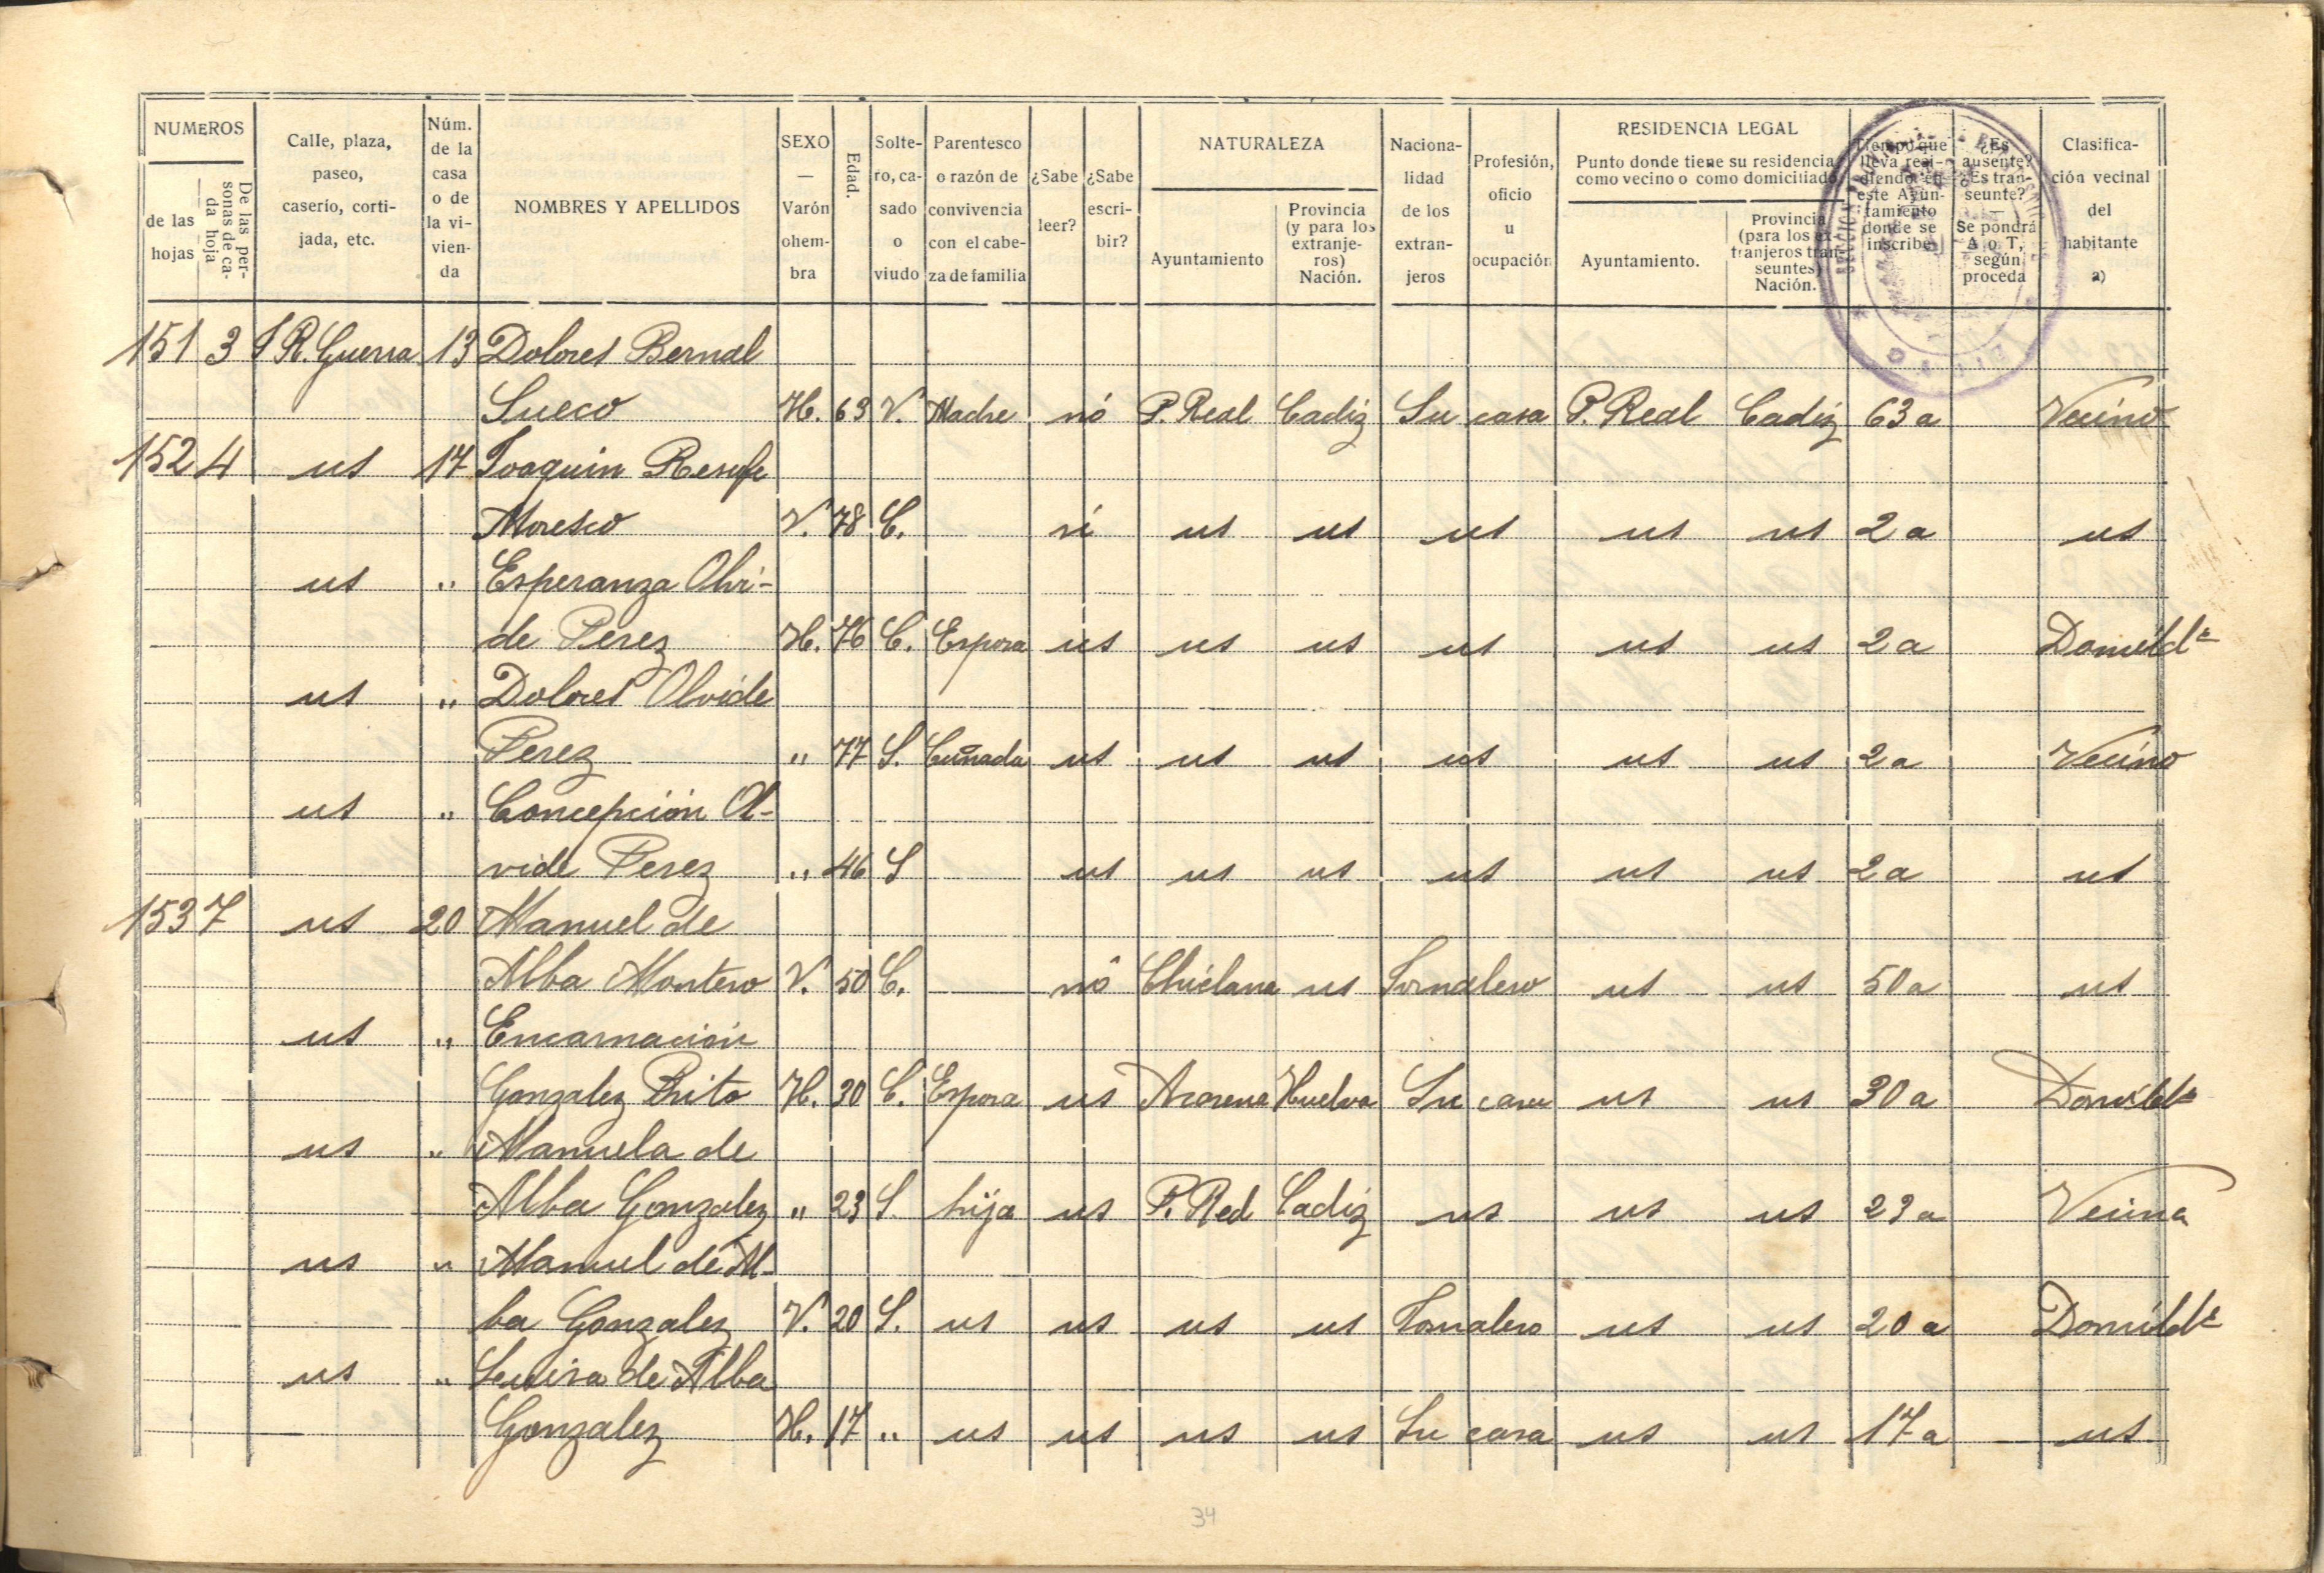 NUMEROS
de las hojas
De las personas de cada hoja
Calle, plaza, paseo, caserío, cortijada, etc.
Núm. de la casa o de la vivienda
NOMBRES Y APELLIDOS
SEXO — Varón ohembra
Edad.
Soltero, casado o viudo
Parentesco o razón de convivencia con el cabeza de familia
¿Sabe leer?
¿Sabe escribir?
NATURALEZA
Ayuntamiento
Provincia (y para los extranjeros) Nación.
Nacionalidad de los extranjeros
Profesión, oficio u ocupación
RESIDENCIA LEGAL
Punto donde tiene su residencia como vecino o como domiciliado
Ayuntamiento.
Provincia (para los extranjeros transeuntes) Nación.
Tiempo que lleva residiendo en este Ayuntamiento donde se inscribe
¿Es ausente? ¿Es transeunte? — Se pondrá A o T, según proceda
Clasificación vecinal del habitante a)
151 3 R. Guerra 13 Dolores Bernal
Sueco H. 63 V. Madre nó P. Real Cadiz Su casa P. Real Cadiz 63 a Vecino
152 4 us 17 Joaquin
Moresco V. 78 C. si us us us us us 2 a us
us " Esperanza Olvi-
de Perez H. 76 C. Esposa us us us us us us 2 a Domilda
us " Dolores Olvide
Perez " 77 S. Cuñada us us us us us us 2a Vecino
us " Concepción Ol-
vide Perez " 46 S us us us us us us 2a us
153 7 us 20 Manuel de
Alba Montero V. 50 C. nó Chiclana us Jornalero us us 50a us
us " Encarnación
Gonzalez Brito H. 30 C. Esposa us Aracena Huelva Su casa us us 30 a Domilda
us " Manuela de
Alba Gonzalez " 23 S. hija us P. Real Cadiz us us us 23 a Vecina
us " Manuel de Al-
ba Gonzalez V. 20 S. us us us us Jornalero us us 20 a Domilda
us " Luisa de Alba
Gonzalez H. 17 " us us us us Su casa us us 17 a us
34